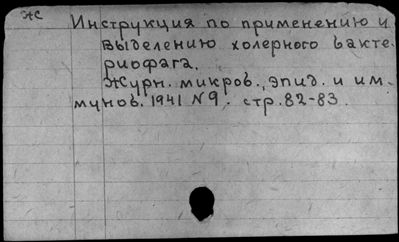 Ж
Инструкция по применению и
выделению холерного бакте-
риофага.
Журн. микров., эпид. и им-
мунов. 1941 №9. стр. 82-83.